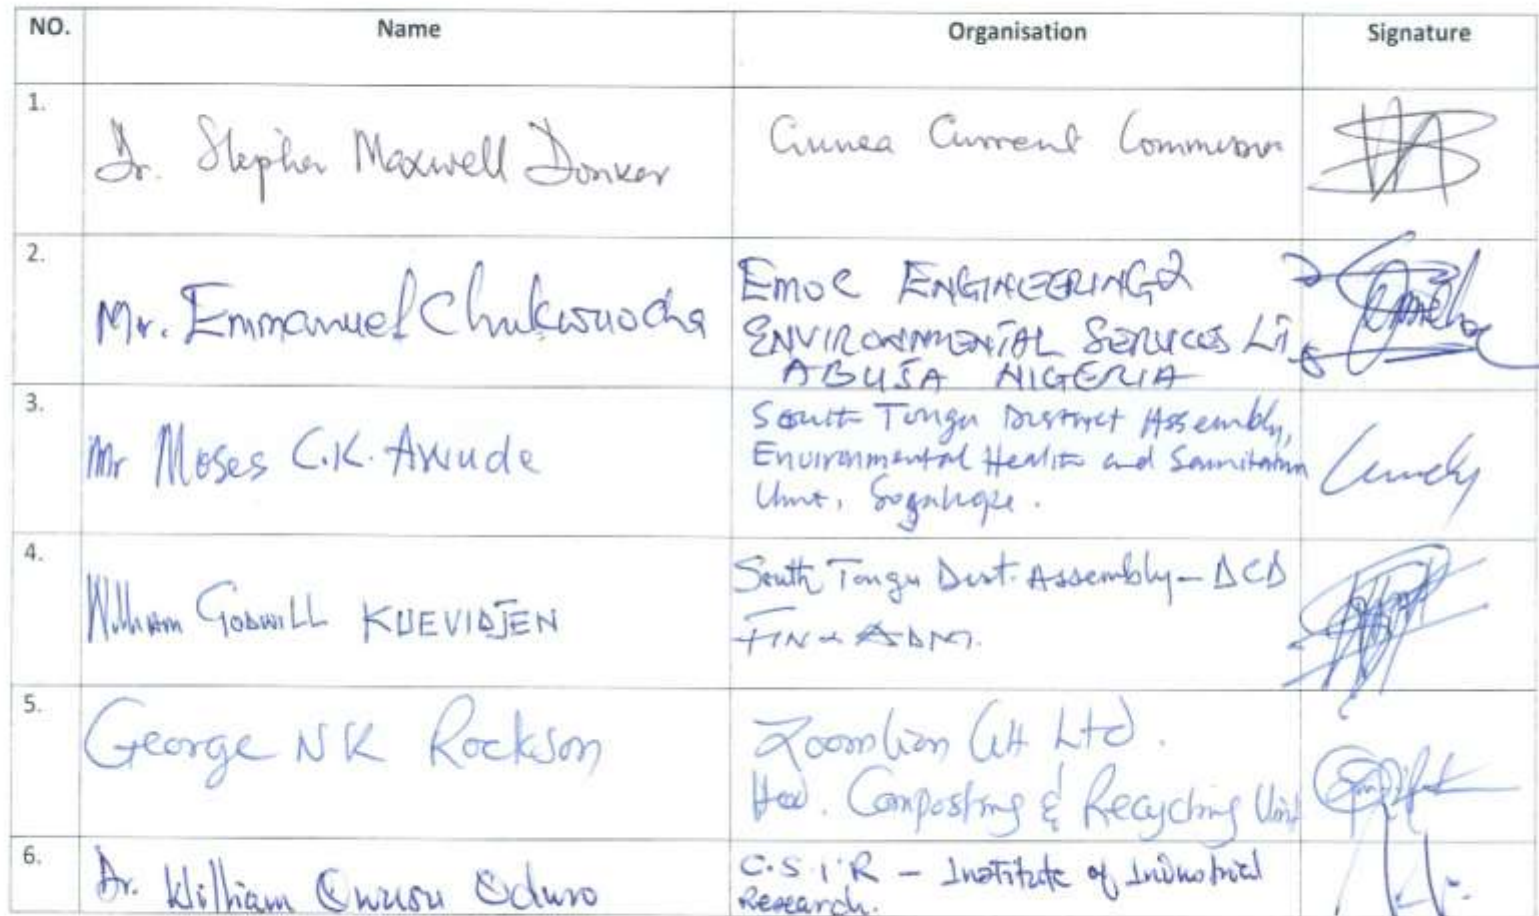 NO. Name Organisation Signature
1. Dr. Stephen Maxwell Donkor Guinea Current Commission
2. Mr. Emmanuel Chukwuocha EMOC ENGINEERING &
ENVIRONMENTAL SERVICES LTD
ABUJA NIGERIA
3. Mr Moses C.K. Awude South Tongu District Assembly,
Environmental Health and Sanitation
Unit, Sogakope.
4. William Godwill KUEVIDJEN South Tongu Dist. Assembly - DCD
FIN & ADM.
5. George NK Rockson Zoomlion GH Ltd.
Head. Composting & Recycling Unit
6. Dr. William Owusu Oduro C.S.I.R - Institute of Industrial
Research.